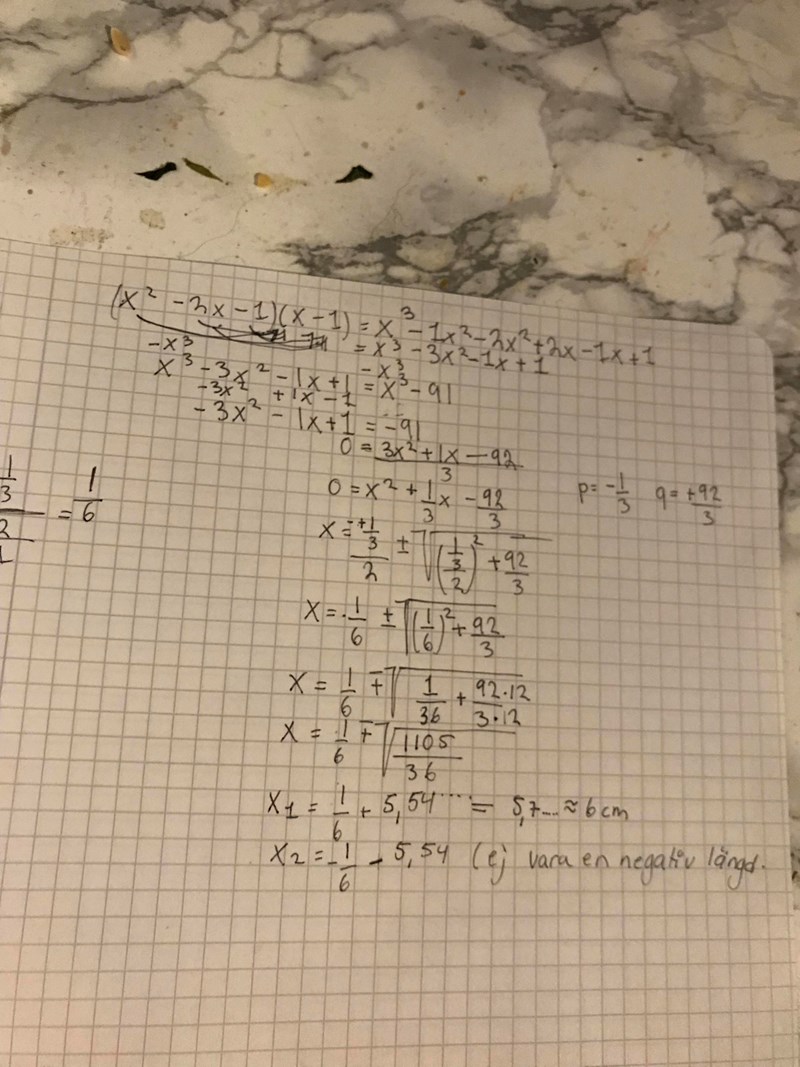 (x² - 2x - 1)(x - 1) = x³ - 1x² - 2x² + 2x - 1x + 1
= x³ - 3x² - 1x + 1
-x³ -x³
x³ - 3x² - 1x + 1 = x³ - 91
-3x² +1x - 1
- 3x² - 1x + 1 = -91
0 = 3x² + 1x - 92
3
0 = x² + 1/3 x - 92/3 p = -1/3 q = +92/3
x = -+1/3/2 ± √((1/3/2)² + 92/3)
x = -1/6 ± √((1/6)² + 92/3)
x = 1/6 ∓ √(1/36 + 92·12/3·12)
x = 1/6 ∓ √(1105/36)
x1 = 1/6 + 5,54.... = 5,7... ≈ 6 cm
x2 = -1/6 - 5,54 (ej vara en negativ längd.
1/3
2 = 1/6
1